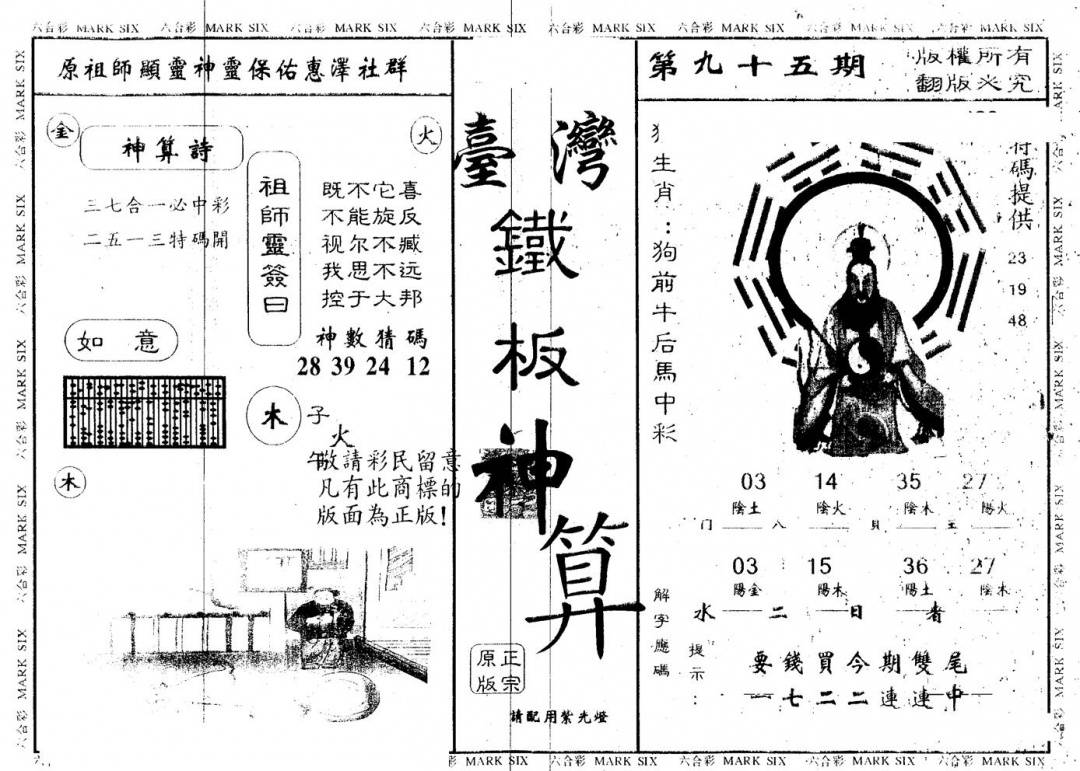 六合彩 MARK SIX 六合彩 MARK SIX 六合彩 MARK SIX 六合彩 MARK SIX 六合彩 MARK SIX 六合彩 MARK SIX 六合彩 MARK SIX 六合彩 MARK SIX
原祖師顯靈神靈保佑惠澤社群
金
神算詩
火
三七合一必中彩
二五一三特碼開
祖師靈簽曰
既不它喜
不能旋反
视尔不臧
我思不远
控于大邦
神數猜碼
28 39 24 12
如意
木
子
火
午
木
敬請彩民留意
凡有此商標的
版面為正版!
臺灣
鐵
板
神
算
正宗
原版
請配用紫光燈
第九十五期
版權所有
翻版必究
生肖:狗前牛后馬中彩
碼提供
23
19
48
03 14 35 27
陰土 陰火 陰木 陽火
门 八 貝 王
03 15 36 27
陽金 陽木 陽土 陰木
解字應碼
水 二 日 者
提示:
要錢買今期雙尾
一七二二連連中
MARK SIX 六合彩 MARK SIX 六合彩 MARK SIX 六合彩 MARK SIX 六合彩 MARK SIX